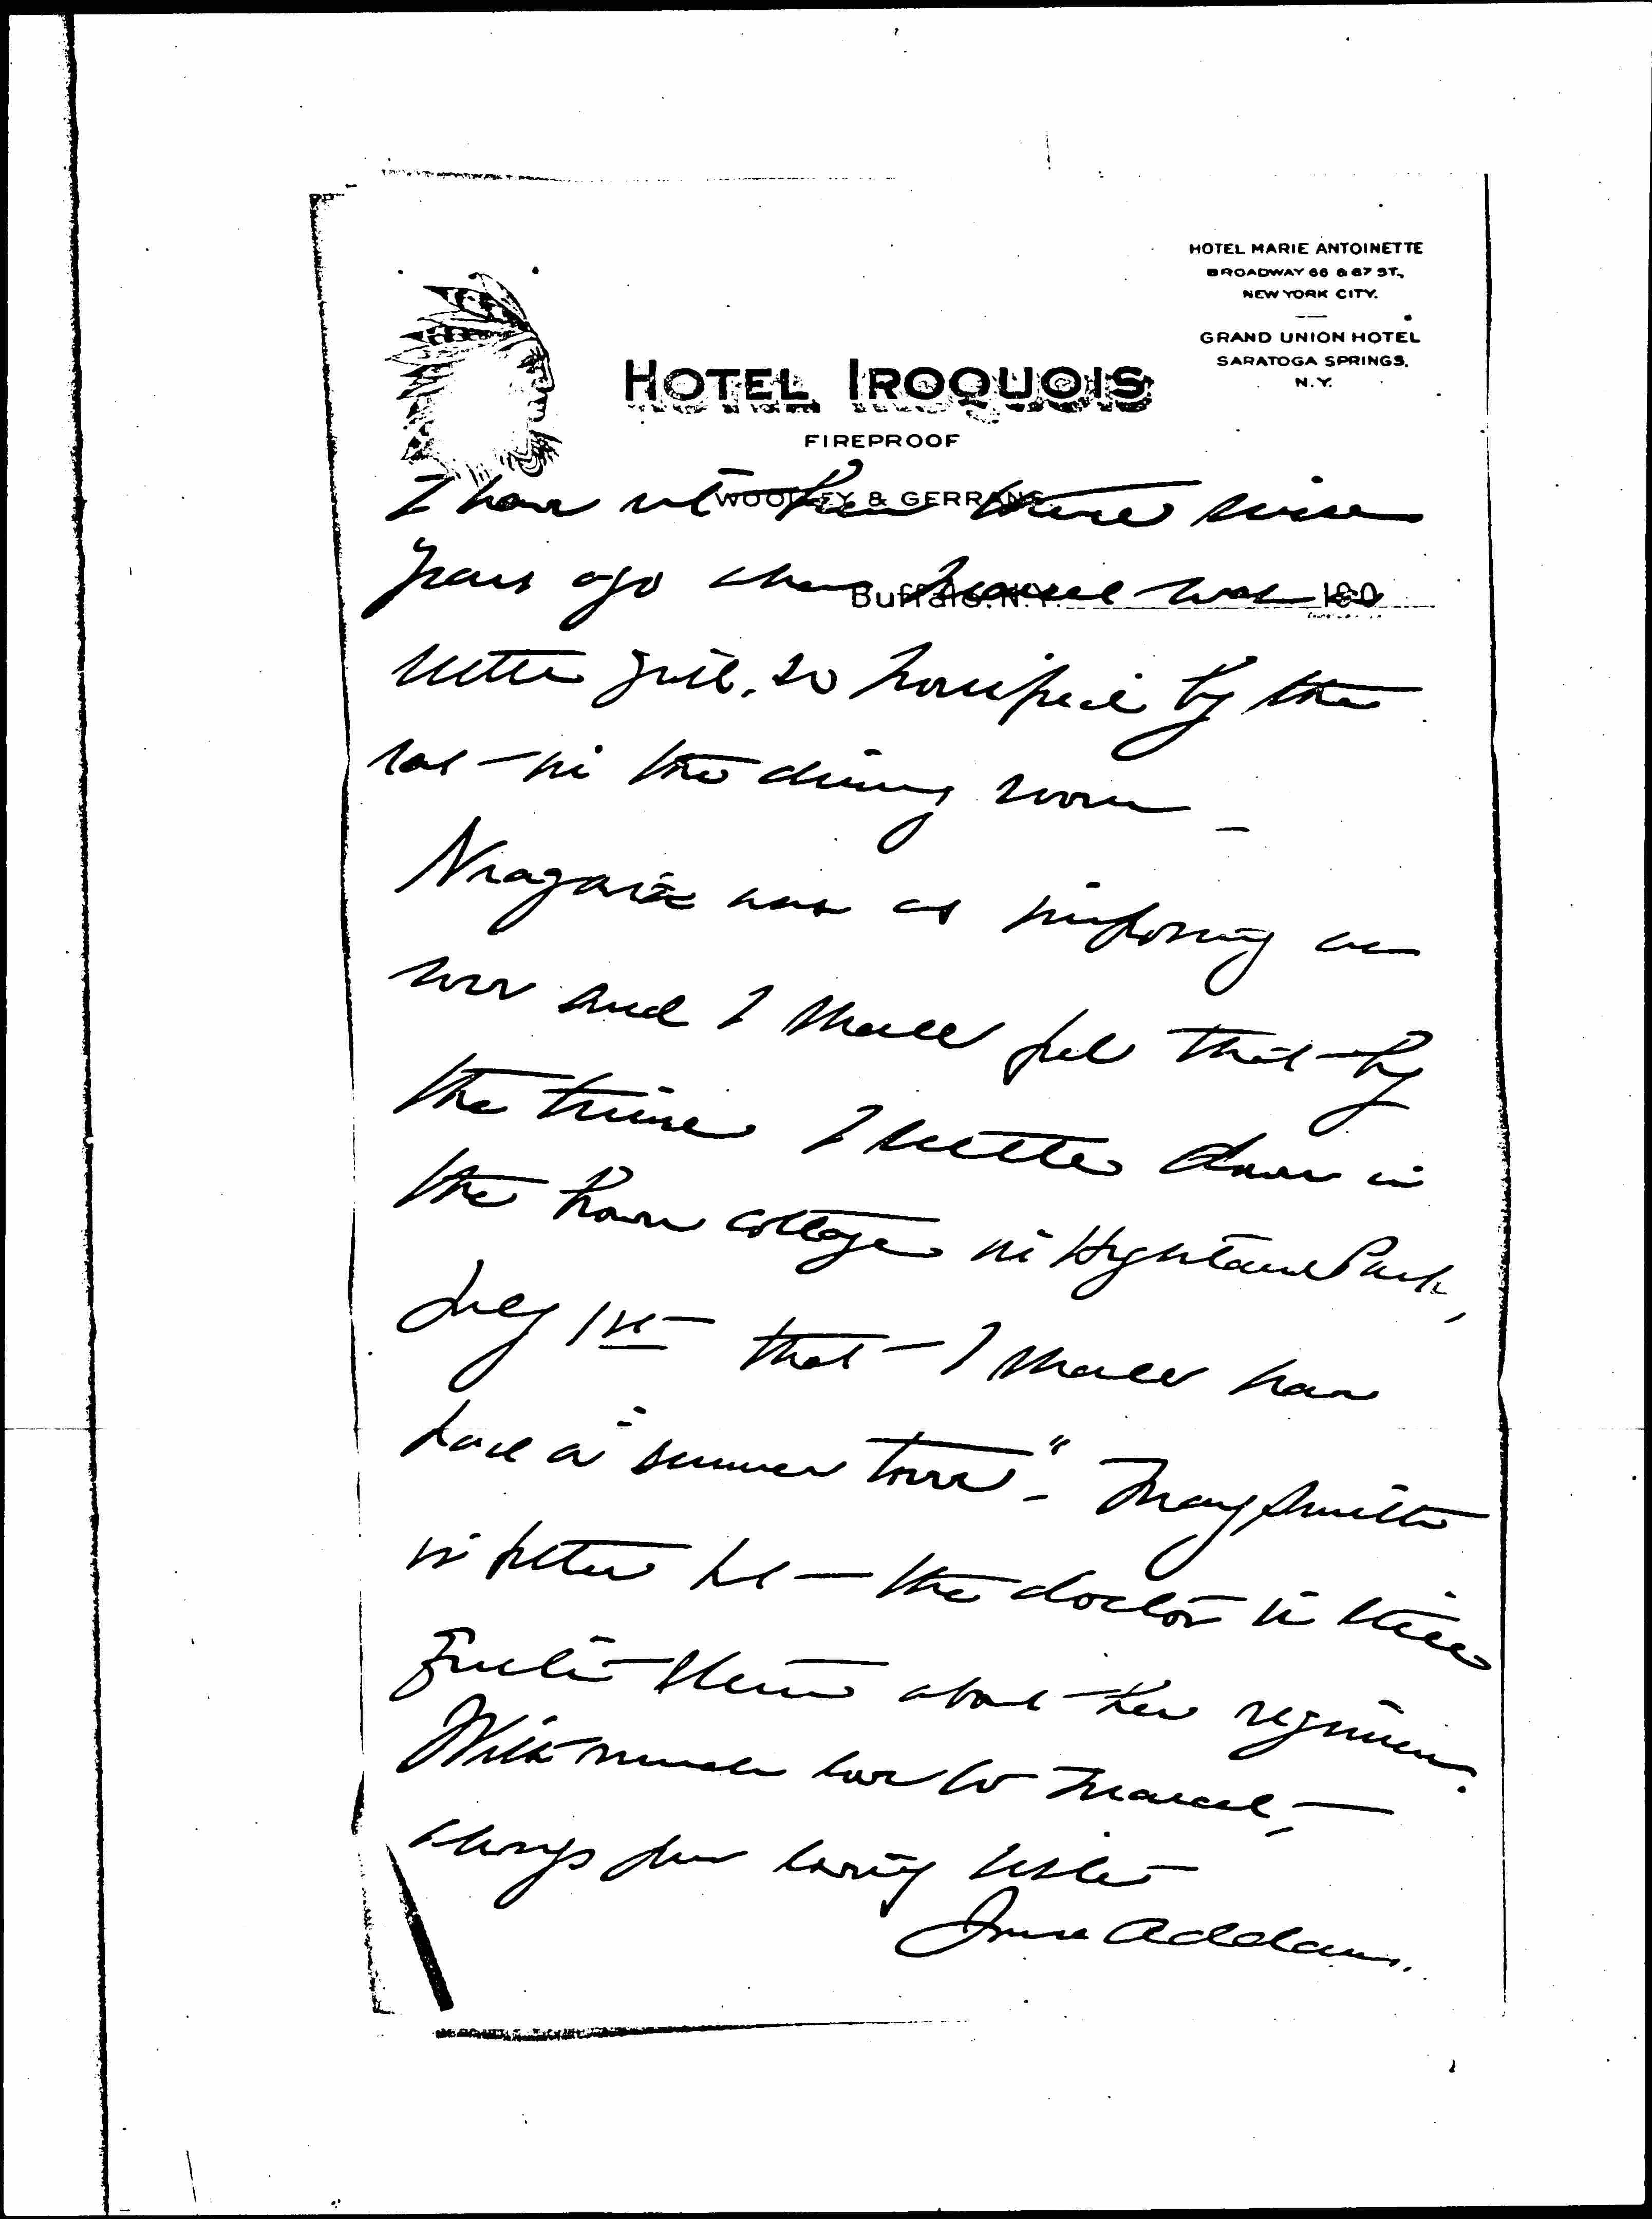 HOTEL MARIE ANTOINETTE
BROADWAY 66 & 67 ST.,
NEW YORK CITY.
GRAND UNION HOTEL
SARATOGA SPRINGS.
N.Y.
HOTEL IROQUOIS
FIREPROOF
WOOLLEY & GERRANS
Buffalo, N.Y. 190
I have not been there since
years ago when Marcet was a
little girl, so horrified by the
in the dining room —
Niagara was as imposing as
ever and I shall feel that by
the time I settle down in
the Bowen cottage in Highland Park,
July 1st — that I shall have
had a "summer tour" — Mary Smith
is better but — the doctor is still
quite stern about her regimen.
With much love to Marcet, —
always your loving sister
Jane Addams.